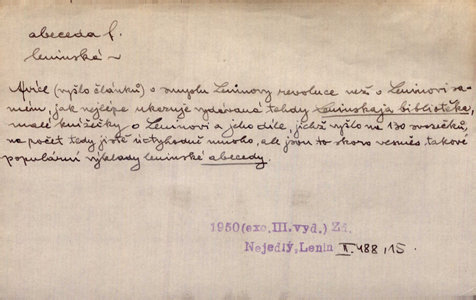 abeceda f.
leninské ~
Avíc (vyšlo článků) o smyslu Leninovy revoluce než o Leninovi sa-
mém, jak nejlépe ukazuje vydávaná tehdy Leninskaja biblioteka,
malé knížečky o Leninovi a jeho díle, jichž vyšlo na 130 svazečků,
na počet tedy jistě úctyhodně mnoho, ale jsou to skoro vesměs takové
populární výklady leninské abecedy.
1950 (exc. III. vyd.) Zd.
Nejedlý, Lenin II. 488, 15